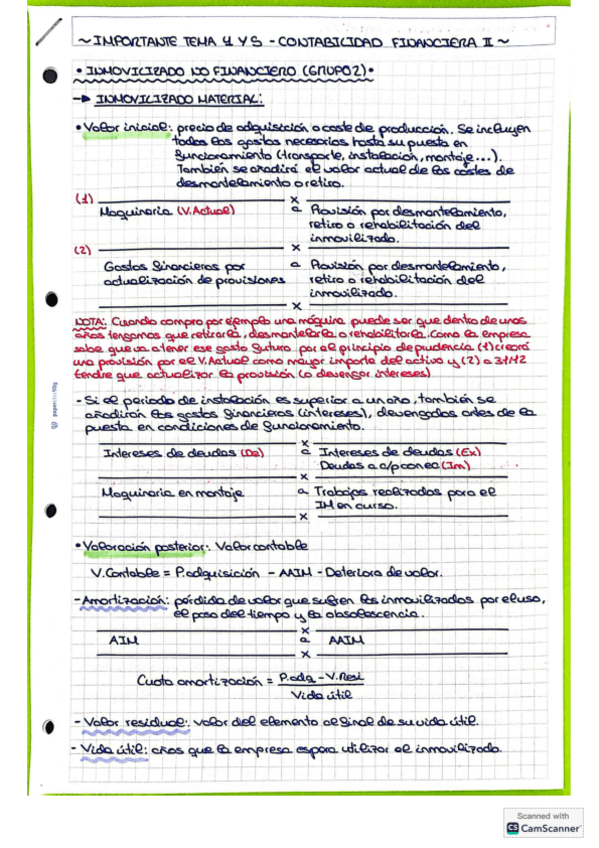 ~IMPORTANTE TEMA 4 Y 5 - CONTABILIDAD FINANCIERA II~
• INMOVILIZADO NO FINANCIERO (GRUPO 2) •
→ INMOVILIZADO MATERIAL:
• Valor inicial: precio de adquisición o coste de producción. Se incluyen
todos los gastos necesarios hasta su puesta en
funcionamiento (transporte, instalación, montaje...).
También se añadirá el valor actual de los costes de
desmantelamiento o retiro.
(1) x
Maquinaria (V.Actual) a Provisión por desmantelamiento,
retiro o rehabilitación del
inmovilizado.
(2) x
Gastos financieros por a Provisión por desmantelamiento,
actualización de provisiones retiro o rehabilitación del
inmovilizado.
x
NOTA: Cuando compro por ejemplo una máquina puede ser que dentro de unos
años tengamos que retirarla, desmantelarla o rehabilitarla. Como la empresa
sabe que va a tener ese gasto futuro, por el principio de prudencia (1) creará
una provisión por el V.Actual como mayor importe del activo y (2) a 31/12
tendré que actualizar la provisión (o devengar intereses)
- Si el periodo de instalación es superior a un año, también se
añadirán los gastos financieros (intereses), devengados antes de la
puesta en condiciones de funcionamiento.
x
Intereses de deudas (De) a Intereses de deudas (Ex)
Deudas a c/p con ec (Im)
x
Maquinaria en montaje a Trabajos realizados para el
IM en curso.
x
• Valoración posterior: Valor contable
V.Contable = P.adquisición - AAIM - Deterioro de valor.
- Amortización: pérdida de valor que sufren los inmovilizados por el uso,
el paso del tiempo y la obsolescencia.
x
AIM a AAIM
x
Cuota amortización = P.adq - V.Resi
Vida útil
- Valor residual: valor del elemento al final de su vida útil.
- Vida útil: años que la empresa espera utilizar el inmovilizado.
Scanned with
CS CamScanner